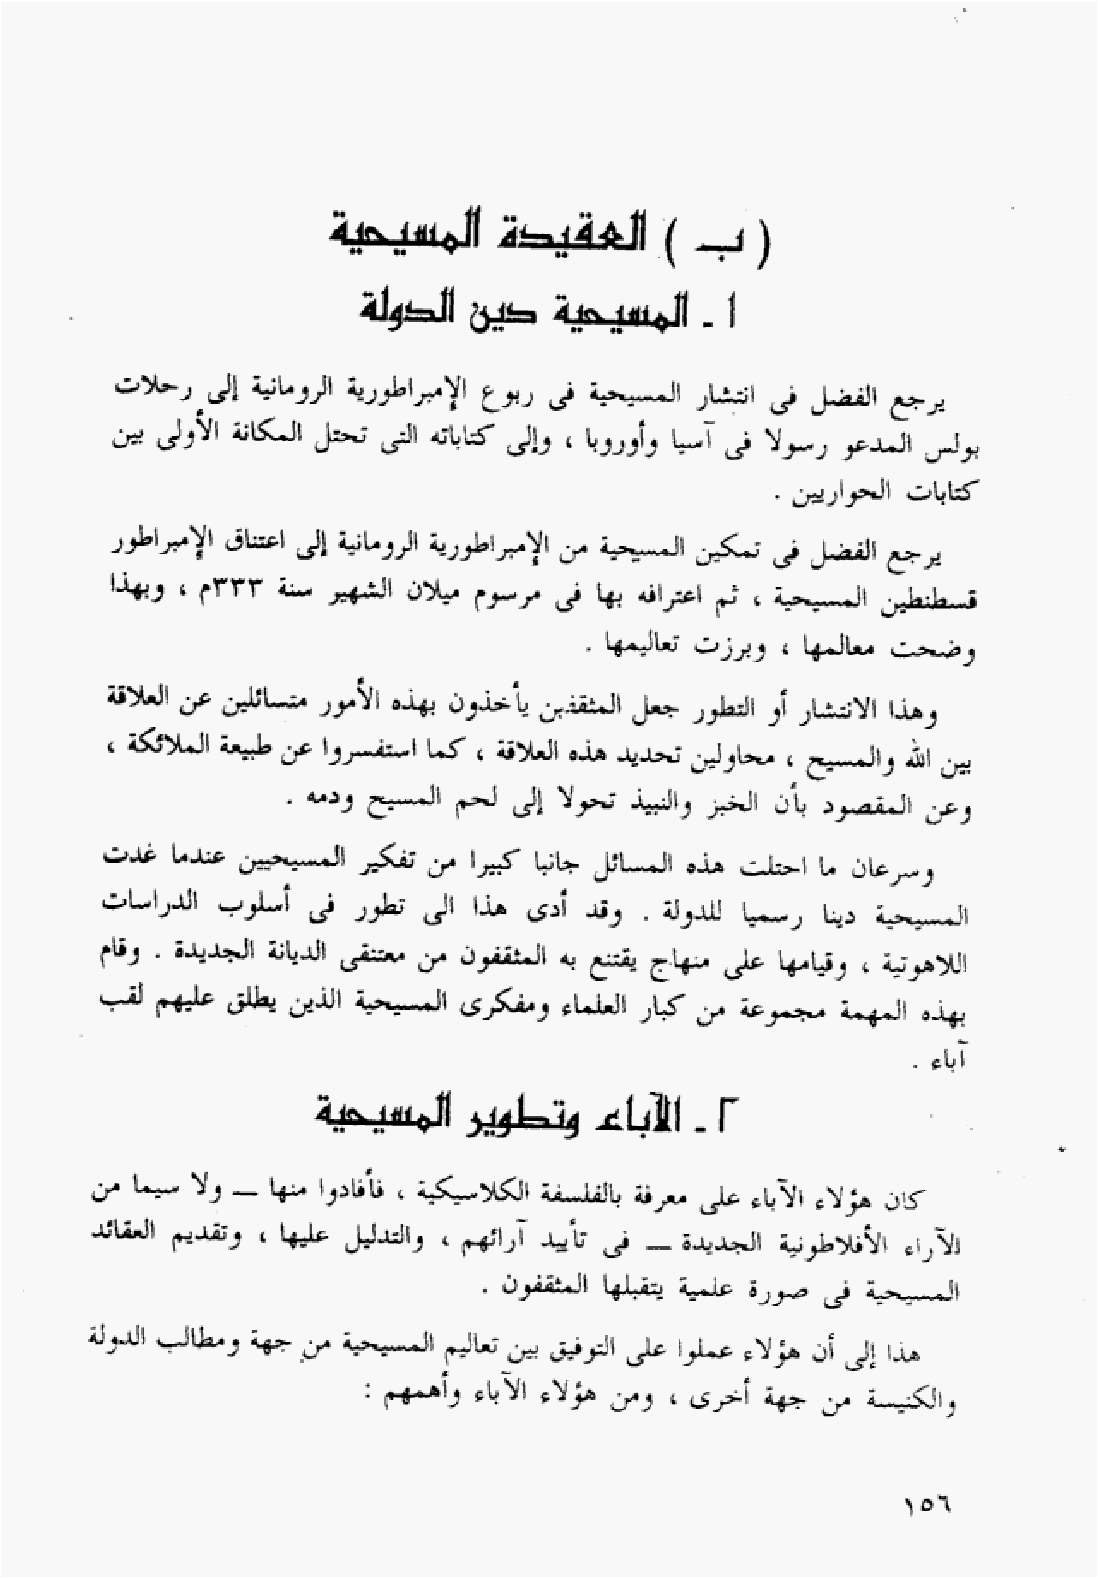 ( ب ) العقيدة المسيحية
١ ـ المسيحية دين الدولة
يرجع الفضل فى انتشار المسيحية فى ربوع الإمبراطورية الرومانية إلى رحلات
بولس المدعو رسولا فى آسيا وأوروبا ، وإلى كتاباته التى تحتل المكانة الأولى بين
كتابات الحواريين .
يرجع الفضل فى تمكين المسيحية من الإمبراطورية الرومانية إلى اعتناق الإمبراطور
قسطنطين المسيحية ، ثم اعترافه بها فى مرسوم ميلان الشهير سنة ٣٣٣م ، وبهذا
وضحت معالمها ، وبرزت تعاليمها .
وهذا الانتشار أو التطور جعل المثقفين يأخذون بهذه الأمور متسائلين عن العلاقة
بين الله والمسيح ، محاولين تحديد هذه العلاقة ، كما استفسروا عن طبيعة الملائكة ،
وعن المقصود بأن الخبز والنبيذ تحولا إلى لحم المسيح ودمه .
وسرعان ما احتلت هذه المسائل جانبا كبيرا من تفكير المسيحيين عندما غدت
المسيحية دينا رسميا للدولة . وقد أدى هذا الى تطور فى أسلوب الدراسات
اللاهوتية ، وقيامها على منهاج يقتنع به المثقفون من معتنقى الديانة الجديدة . وقام
بهذه المهمة مجموعة من كبار العلماء ومفكرى المسيحية الذين يطلق عليهم لقب
آباء .
٢ ـ الآباء وتطوير المسيحية
كان هؤلاء الآباء على معرفة بالفلسفة الكلاسيكية ، فأفادوا منها — ولا سيما من
الآراء الأفلاطونية الجديدة — فى تأييد آرائهم ، والتدليل عليها ، وتقديم العقائد
المسيحية فى صورة علمية يتقبلها المثقفون .
هذا إلى أن هؤلاء عملوا على التوفيق بين تعاليم المسيحية من جهة ومطالب الدولة
والكنيسة من جهة أخرى ، ومن هؤلاء الآباء وأهمهم :
١٥٦